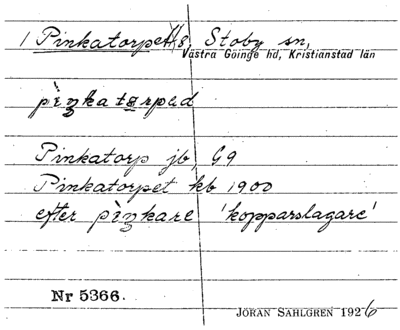 1 Pinkatorpet 1/8 Stoby sn,
Västra Göinge hd, Kristianstad län
pìŋkatɷrpəd
Pinkatorp jb, G9
Pinkatorpet kb 1900
efter pìŋkare 'kopparslagare'
Nr 5366.
JÖRAN SAHLGREN 1926